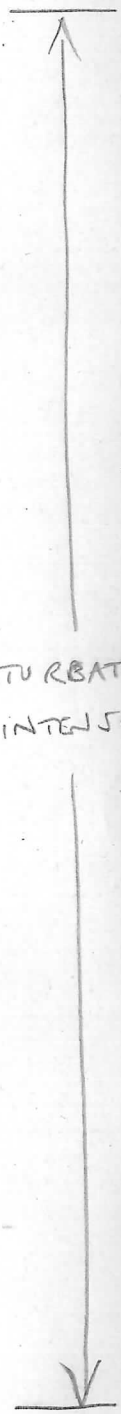 TURBAT
INTENS